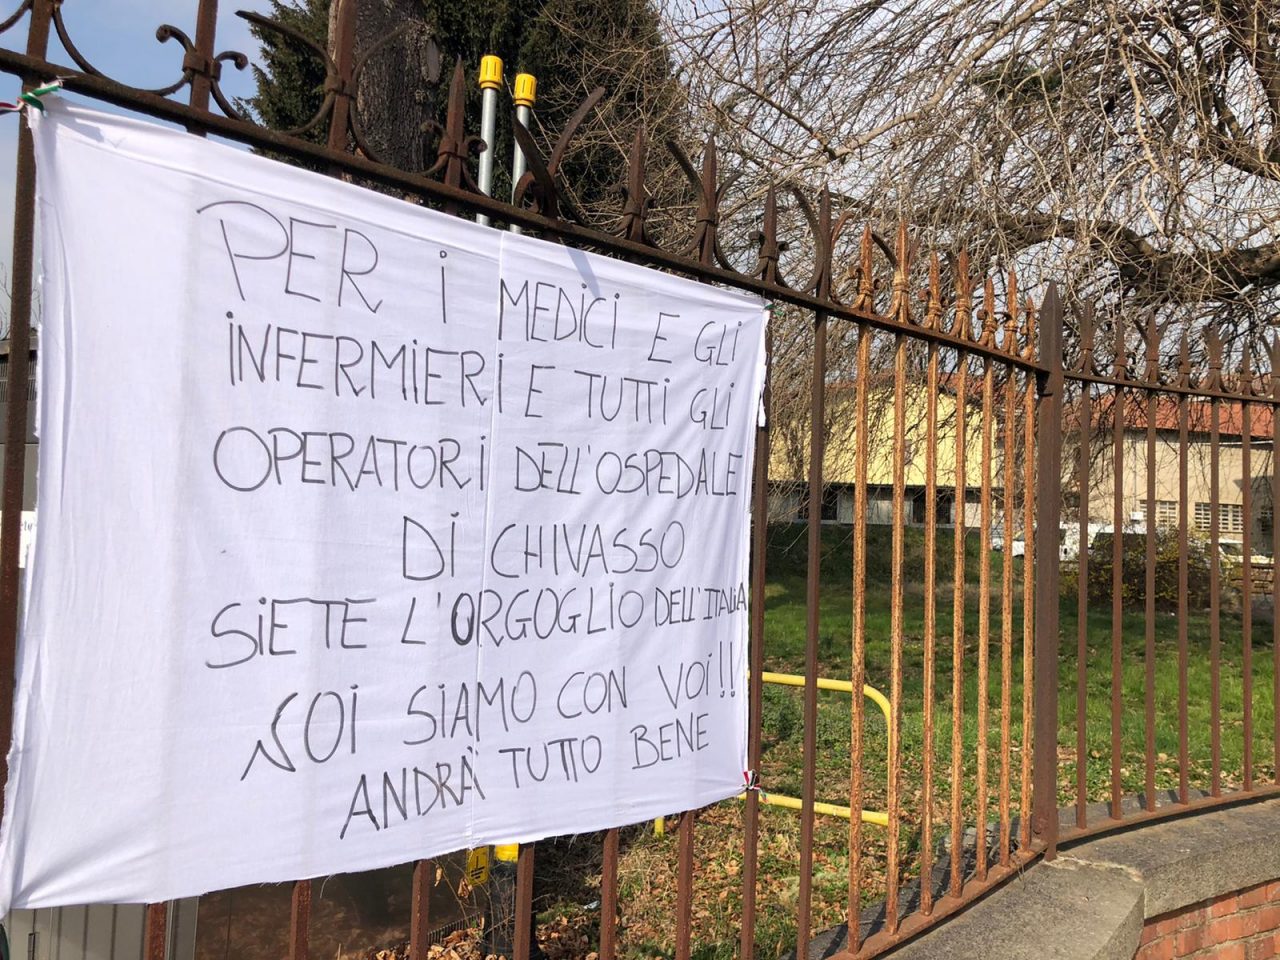 PER I MEDICI E GLI
INFERMIERI E TUTTI GLI
OPERATORI DELL'OSPEDALE
DI CHIVASSO
SIETE L'ORGOGLIO DELL'ITALIA
NOI SIAMO CON VOI!!
ANDRÀ TUTTO BENE